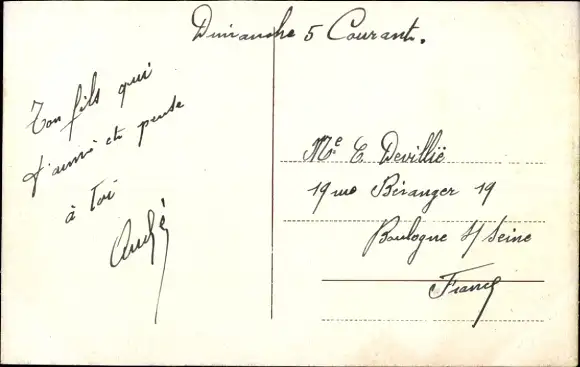 Dimanche 5 Courant.
Ton fils qui
t'aime et pense
à toi
André
Me E Devillié
19 rue Béranger 19
Boulogne s/ Seine
France